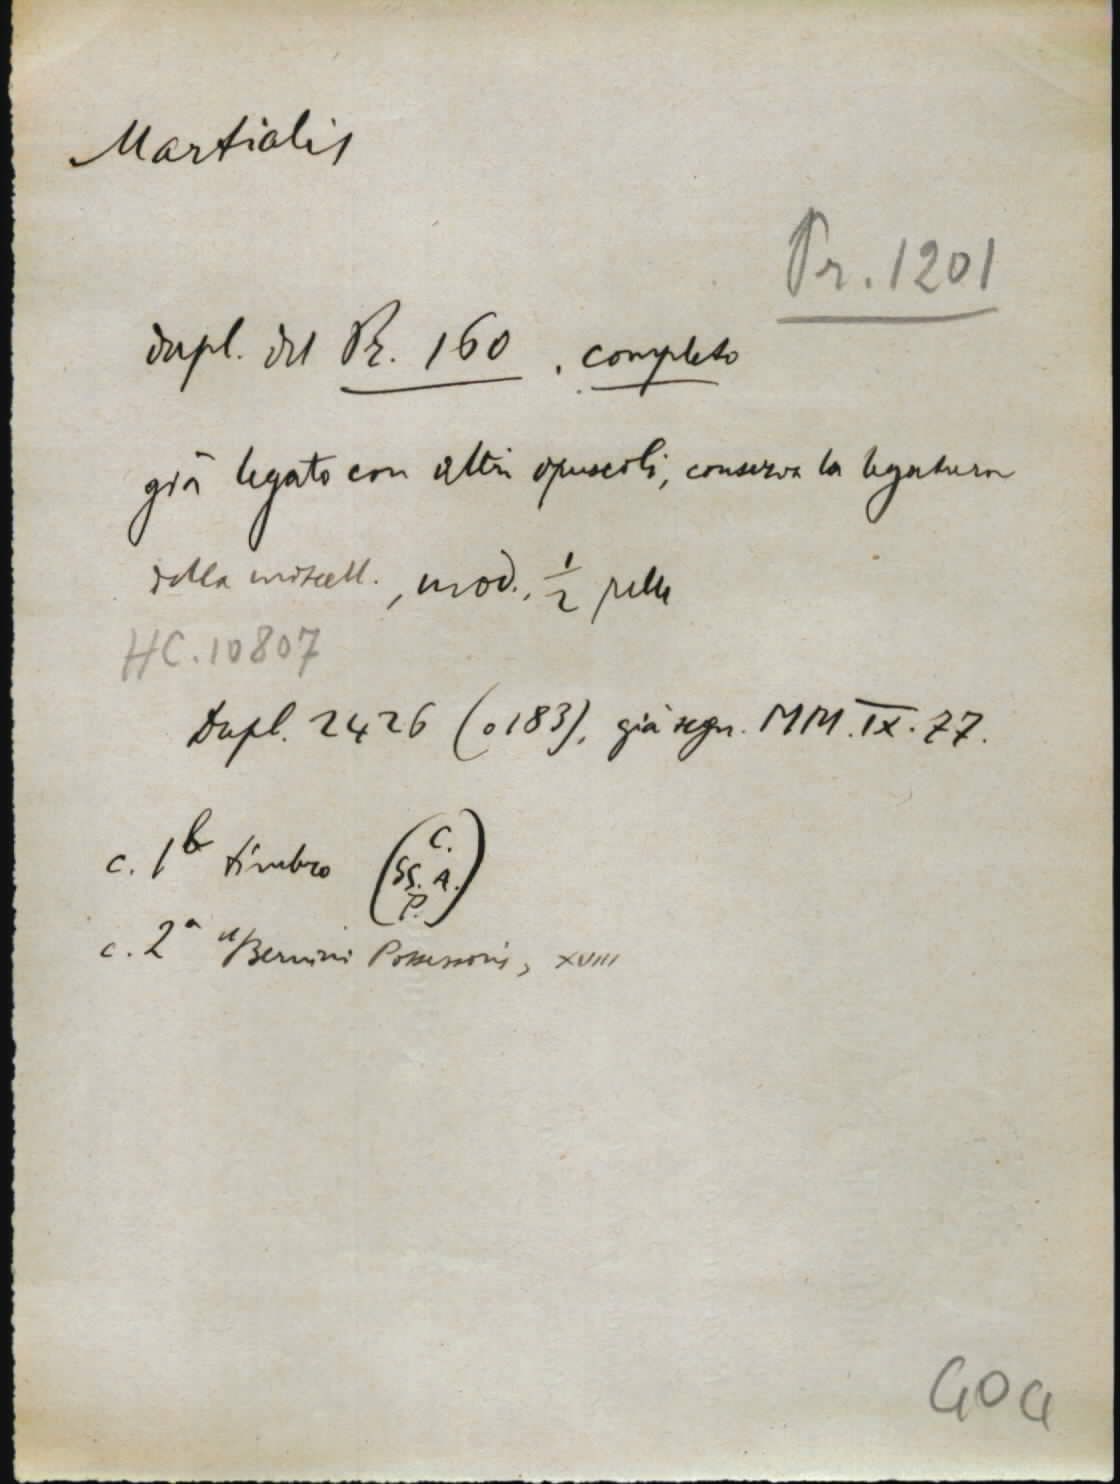 Martialis
Pr. 1201
dupl. del Pr. 160. completo
già legato con altri opuscoli, conserva la legatura
della miscell., mod., ½ pelle
HC. 10807
Dupl. 2426 (o183), già segn. MM.IX.77.
c. 1b timbro (C. SS. A. P.)
c. 2a "Bernini Possessoris, XVIII